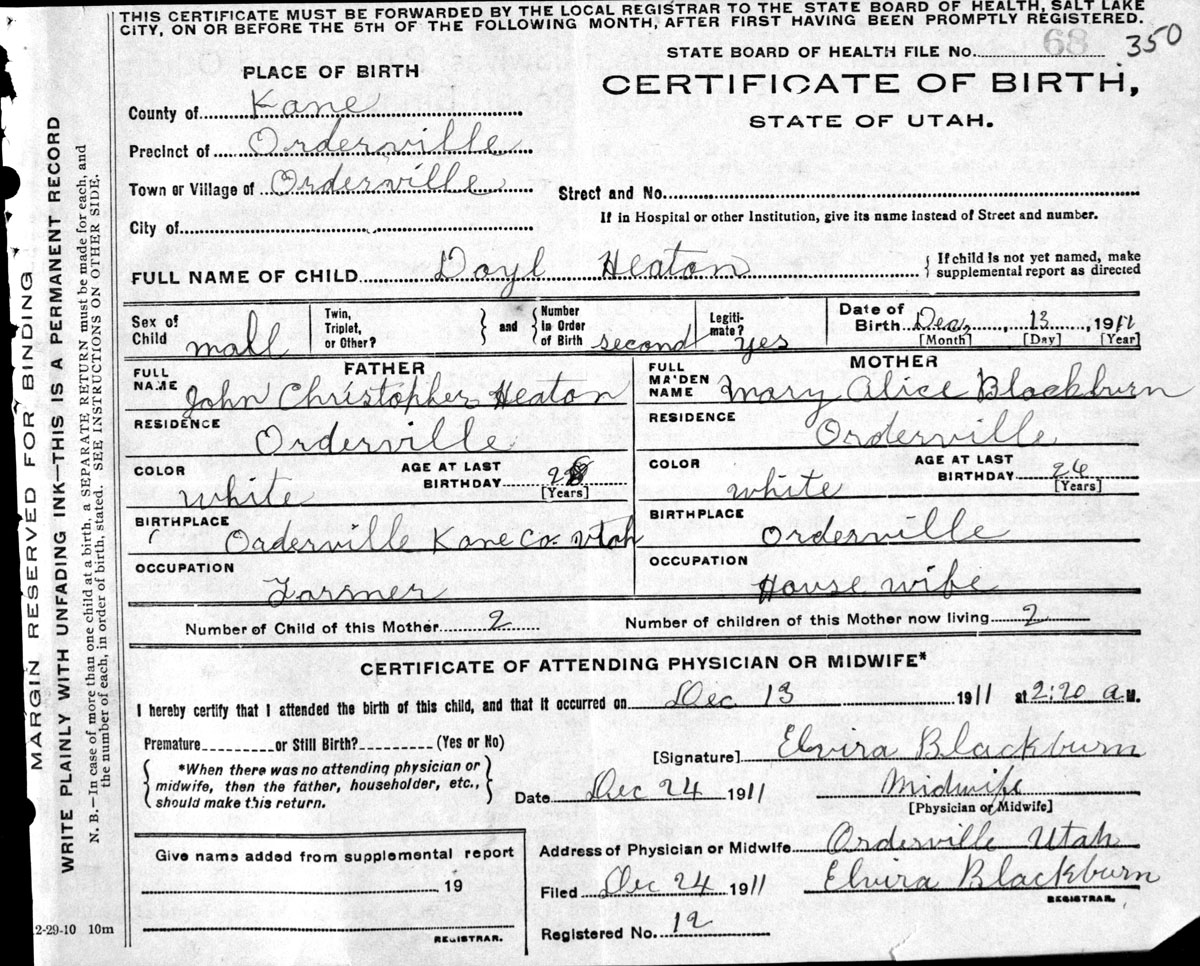 THIS CERTIFICATE MUST BE FORWARDED BY THE LOCAL REGISTRAR TO THE STATE BOARD OF HEALTH, SALT LAKE
CITY, ON OR BEFORE THE 5TH OF THE FOLLOWING MONTH, AFTER FIRST HAVING BEEN PROMPTLY REGISTERED.
STATE BOARD OF HEALTH FILE NO. 68 350
PLACE OF BIRTH
CERTIFICATE OF BIRTH,
STATE OF UTAH.
County of Kane
Precinct of Orderville
Town or Village of Orderville
Street and No.
If in Hospital or other Institution, give its name instead of Street and number.
City of
FULL NAME OF CHILD Doyl Heaton
{ If child is not yet named, make
supplemental report as directed
Sex of
Child mall
Twin,
Triplet,
or Other?
} and {
Number
in Order
of Birth second
Legiti-
mate? yes
Date of
Birth Dec, 13, 1911
[Month] [Day] [Year]
FATHER
FULL
NAME John Christopher Heaton
RESIDENCE
Orderville
COLOR
white
AGE AT LAST
BIRTHDAY
[Years]
BIRTHPLACE
Orderville Kane Co. Utah
OCCUPATION
Farmer
MOTHER
FULL
MAIDEN
NAME Mary Alice Blackburn
RESIDENCE
Orderville
COLOR
white
AGE AT LAST
BIRTHDAY 24
[Years]
BIRTHPLACE
Orderville
OCCUPATION
House wife
Number of Child of this Mother 2
Number of children of this Mother now living 2
CERTIFICATE OF ATTENDING PHYSICIAN OR MIDWIFE*
I hereby certify that I attended the birth of this child, and that it occurred on Dec 13 1911 at 2:20 a M.
Premature or Still Birth? (Yes or No)
{ *When there was no attending physician or
midwife, then the father, householder, etc.,
should make this return. }
[Signature] Elvira Blackburn
Date Dec 24 1911
Midwife
[Physician or Midwife]
Give name added from supplemental report
19
REGISTRAR.
Address of Physician or Midwife Orderville Utah
Filed Dec 24 1911 Elvira Blackburn
REGISTRAR.
Registered No. 12
2-29-10 10m
MARGIN RESERVED FOR BINDING
WRITE PLAINLY WITH UNFADING INK—THIS IS A PERMANENT RECORD
N. B.—In case of more than one child at a birth, a SEPARATE RETURN must be made for each, and
the number of each, in order of birth, stated. SEE INSTRUCTIONS ON OTHER SIDE.